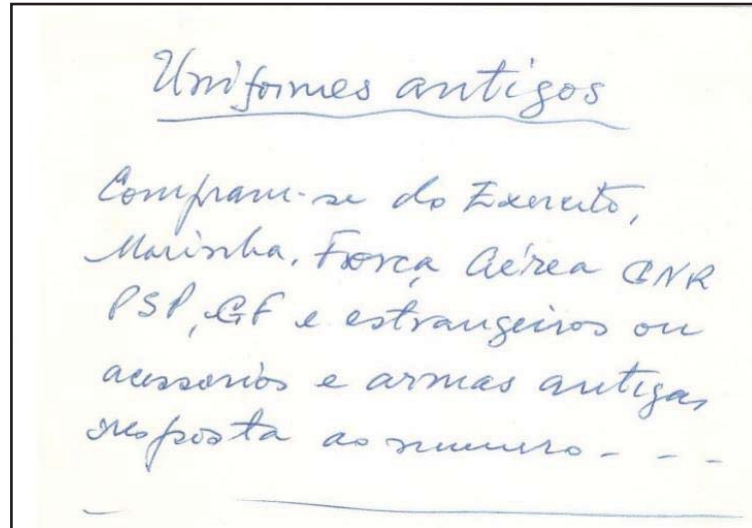 Uniformes antigos
Compram-se do Exercito,
Marinha, Força Aérea GNR
PSP, GF e estrangeiros ou
acessorios e armas antigas
resposta ao numero - - -